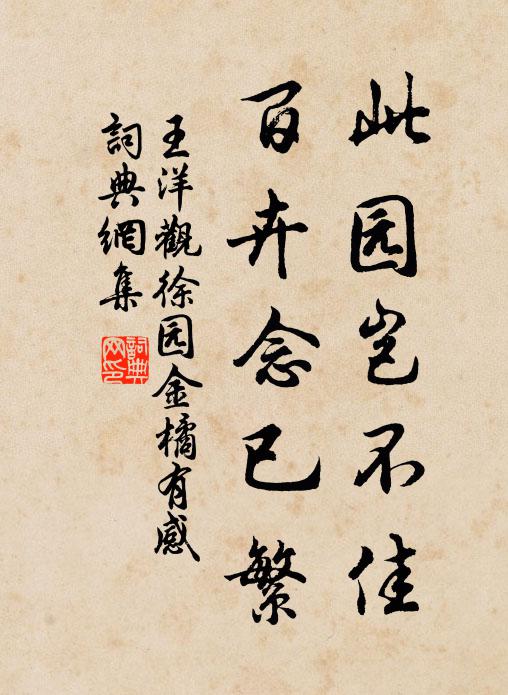 此园岂不佳
百卉念已繁
王洋觀徐园金橘有感
詞典網集
詞典
网印